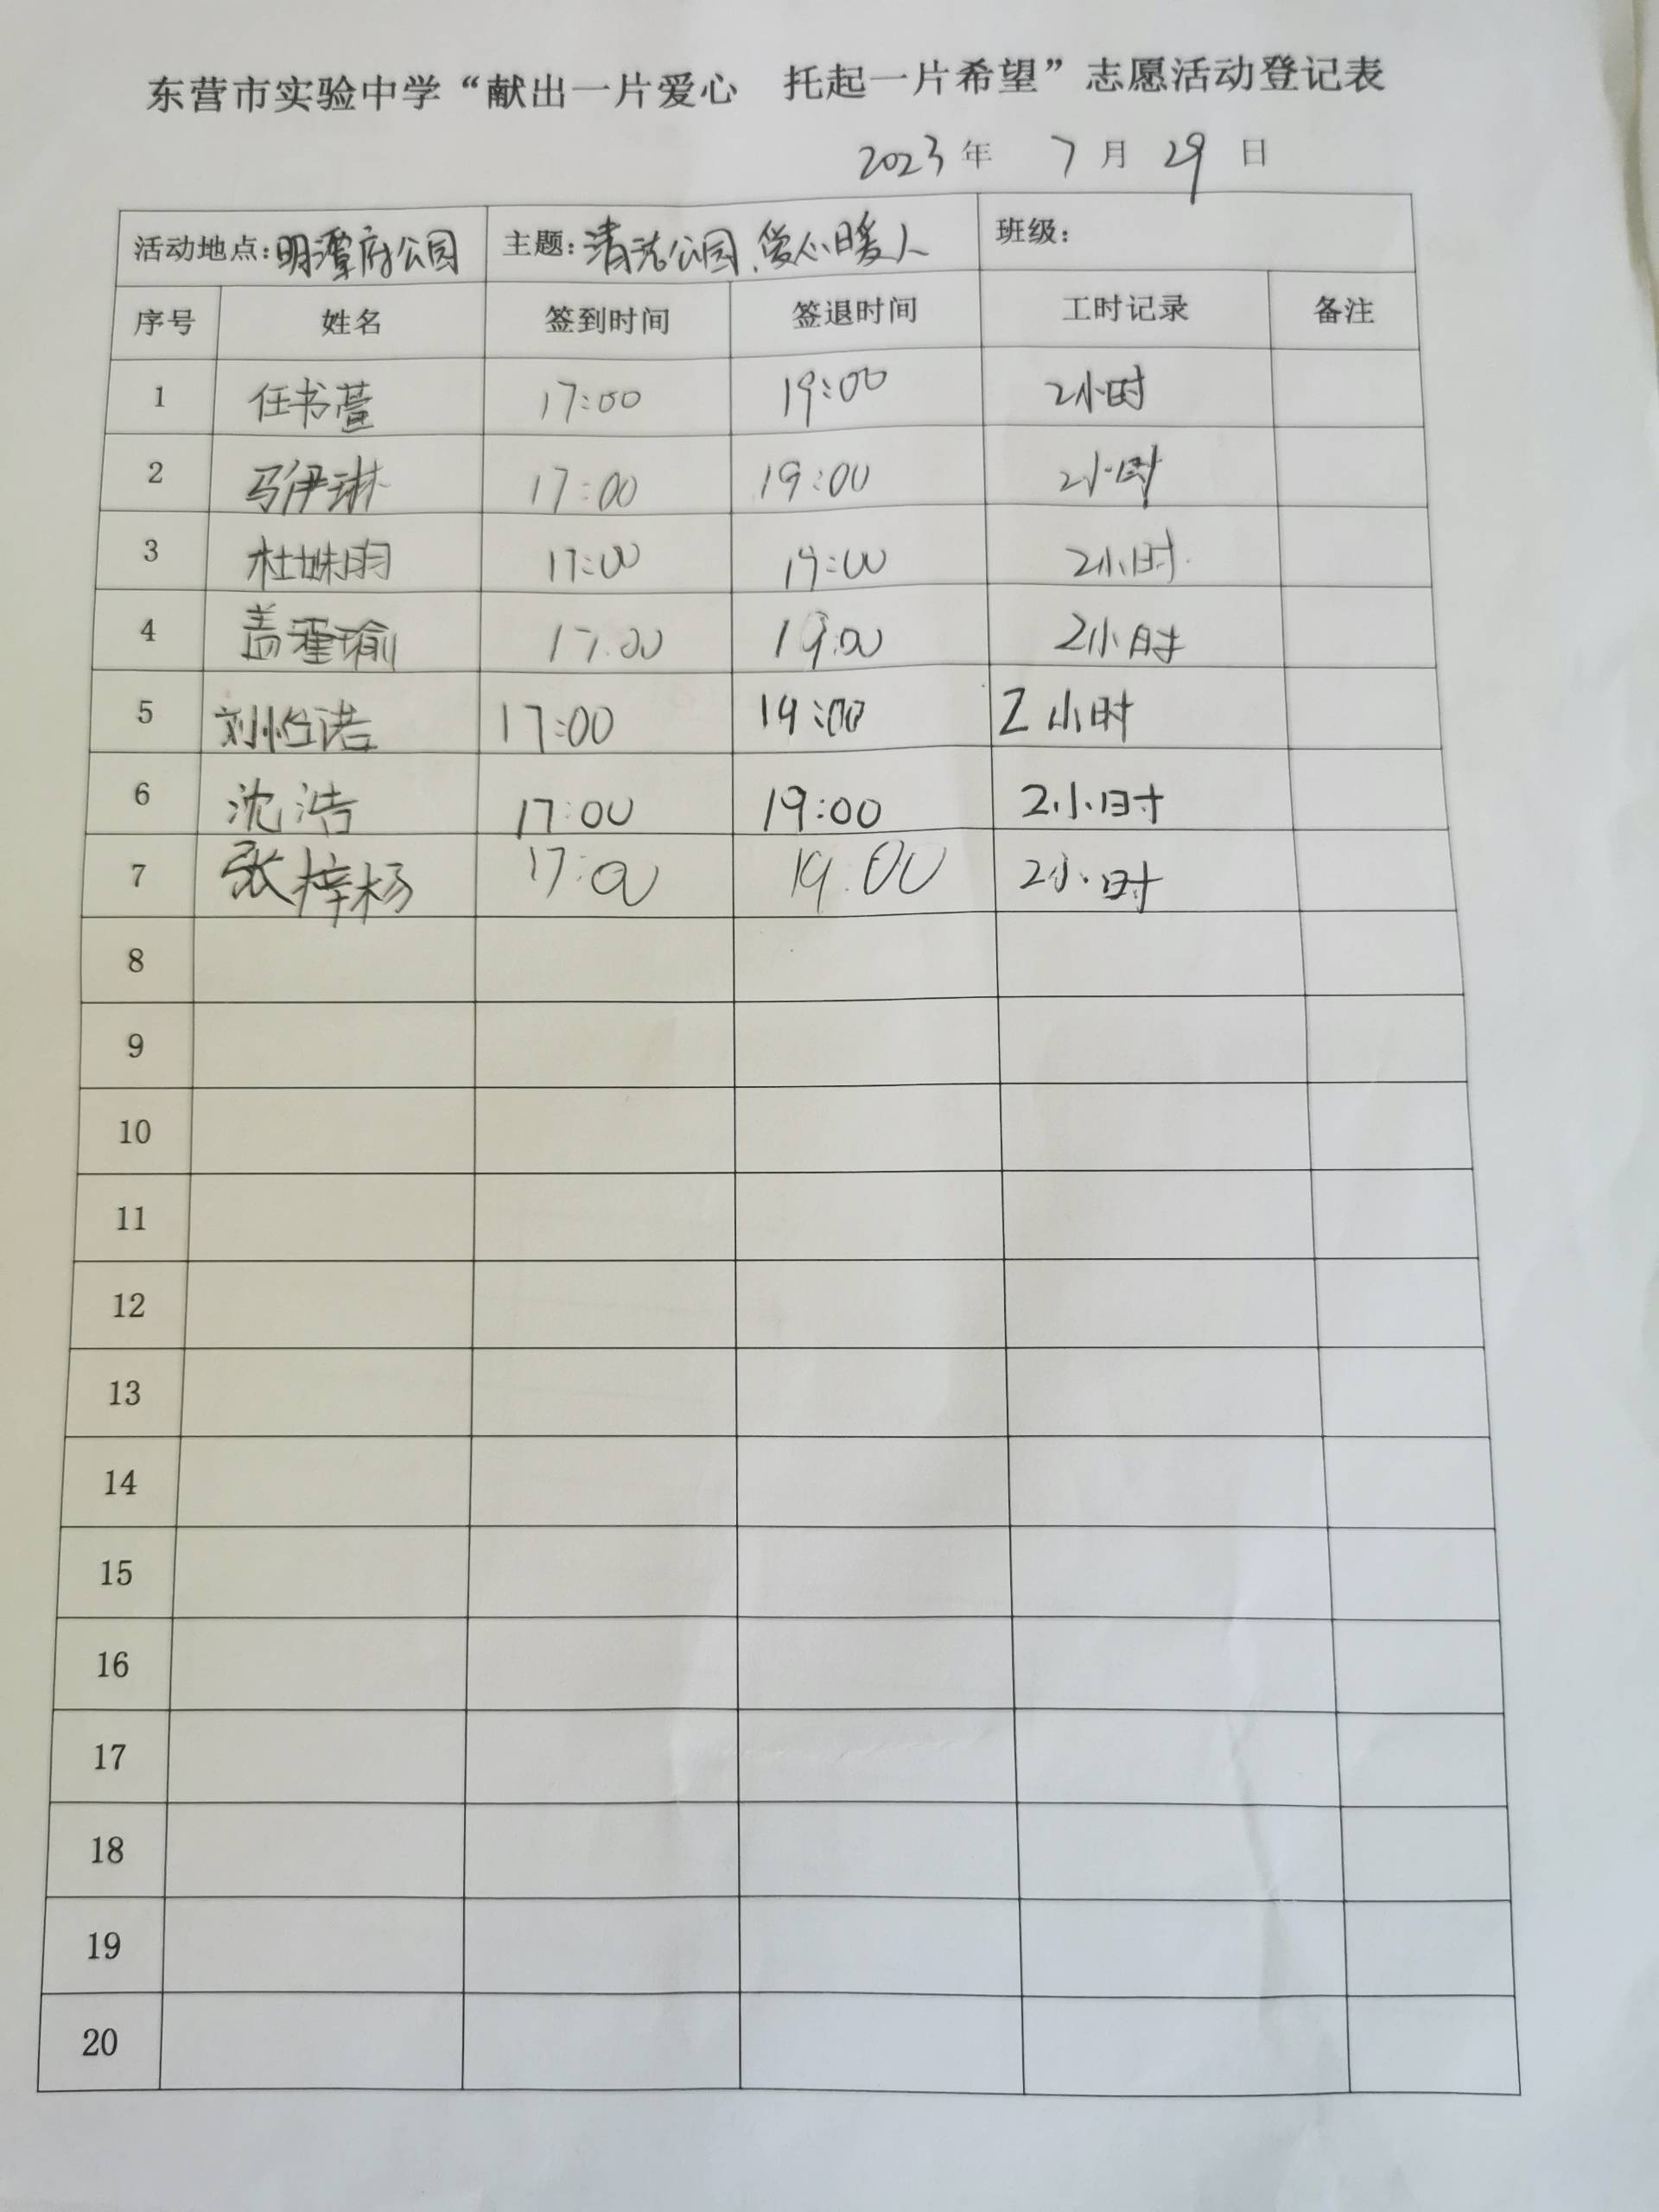 东营市实验中学“献出一片爱心　托起一片希望”志愿活动登记表
2023 年 7 月 29 日
活动地点：明潭府公园 主题：清洁公园、爱心暖人 班级：
序号 姓名 签到时间 签退时间 工时记录 备注
1 任书萱 17:00 19:00 2小时
2 马伊琳 17:00 19:00 2小时
3 杜姝昀 17:00 19:00 2小时
4 盖瑾瑜 17:00 19:00 2小时
5 17:00 19:00 2小时
6 沈浩 17:00 19:00 2小时
7 张梓杨 17:00 19:00 2小时
8
9
10
11
12
13
14
15
16
17
18
19
20